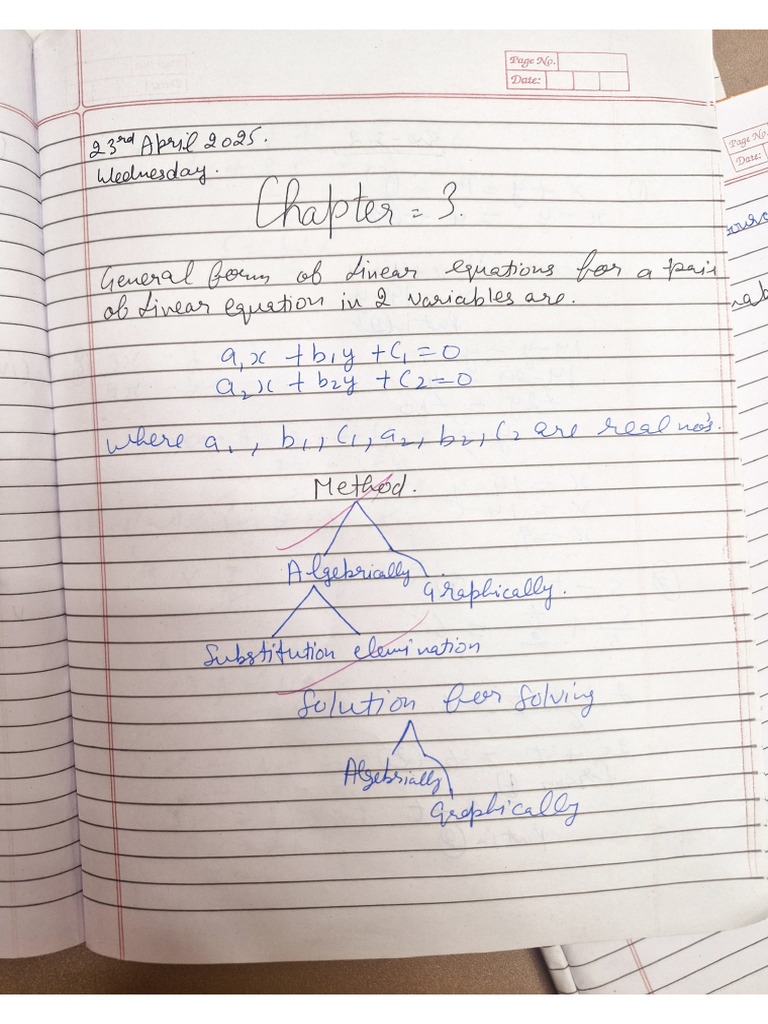 Page No.
Date:
23rd April 2025.
Wednesday.
Chapter = 3.
General form of Linear equations for a pair
of Linear equation in 2 variables are.
a₁x + b₁y + c₁ = 0
a₂x + b₂y + c₂ = 0
where a₁, b₁, c₁, a₂, b₂, c₂ are real no's.
Method.
Algebrially Graphically.
Substitution elemination
Solution for Solving
Algebrially
Graphically
Page No.
Date: